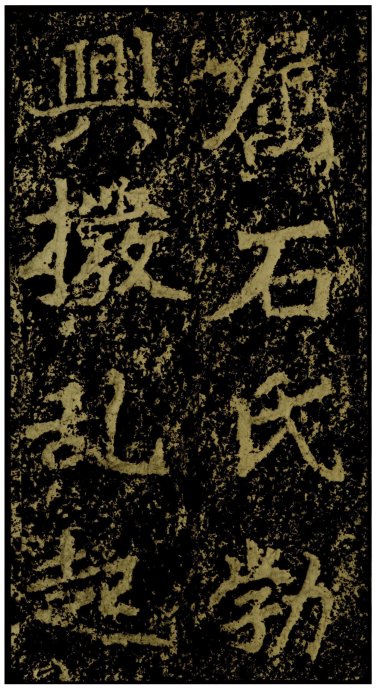 属石氏勃
興撥乱起